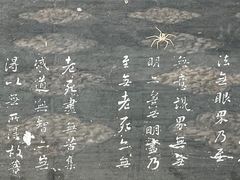 法無眼界乃至
無意識界無無
明亦無無明盡乃
至無老死亦無
老死盡無苦集
滅道無智亦無
得以無所得故菩